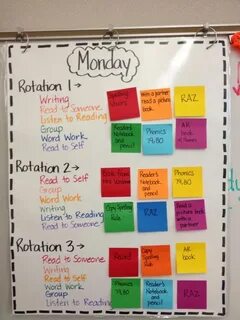 Monday
Rotation 1→
Writing
Read to Someone
Listen to Reading
Group
Word Work
Read to Self
Spelling
With a partner read a picture book
RAZ
Reader's Notebook and pencil
Phonics
79,80
AR book
Rotation 2→
Read to Self
Group
Word Work
Writing
Listen to Reading
Read to Someone
Book from
Reader's Notebook and pencil
Phonics
79,80
Copy Spelling
RAZ
Read a picture book with a partner
Rotation 3→
Read to Someone
Writing
Read to Self
Word Work
Group
Listen to Reading
Read
Copy Spelling
AR book
Phonics
79,80
Reader's Notebook and pencil
RAZ